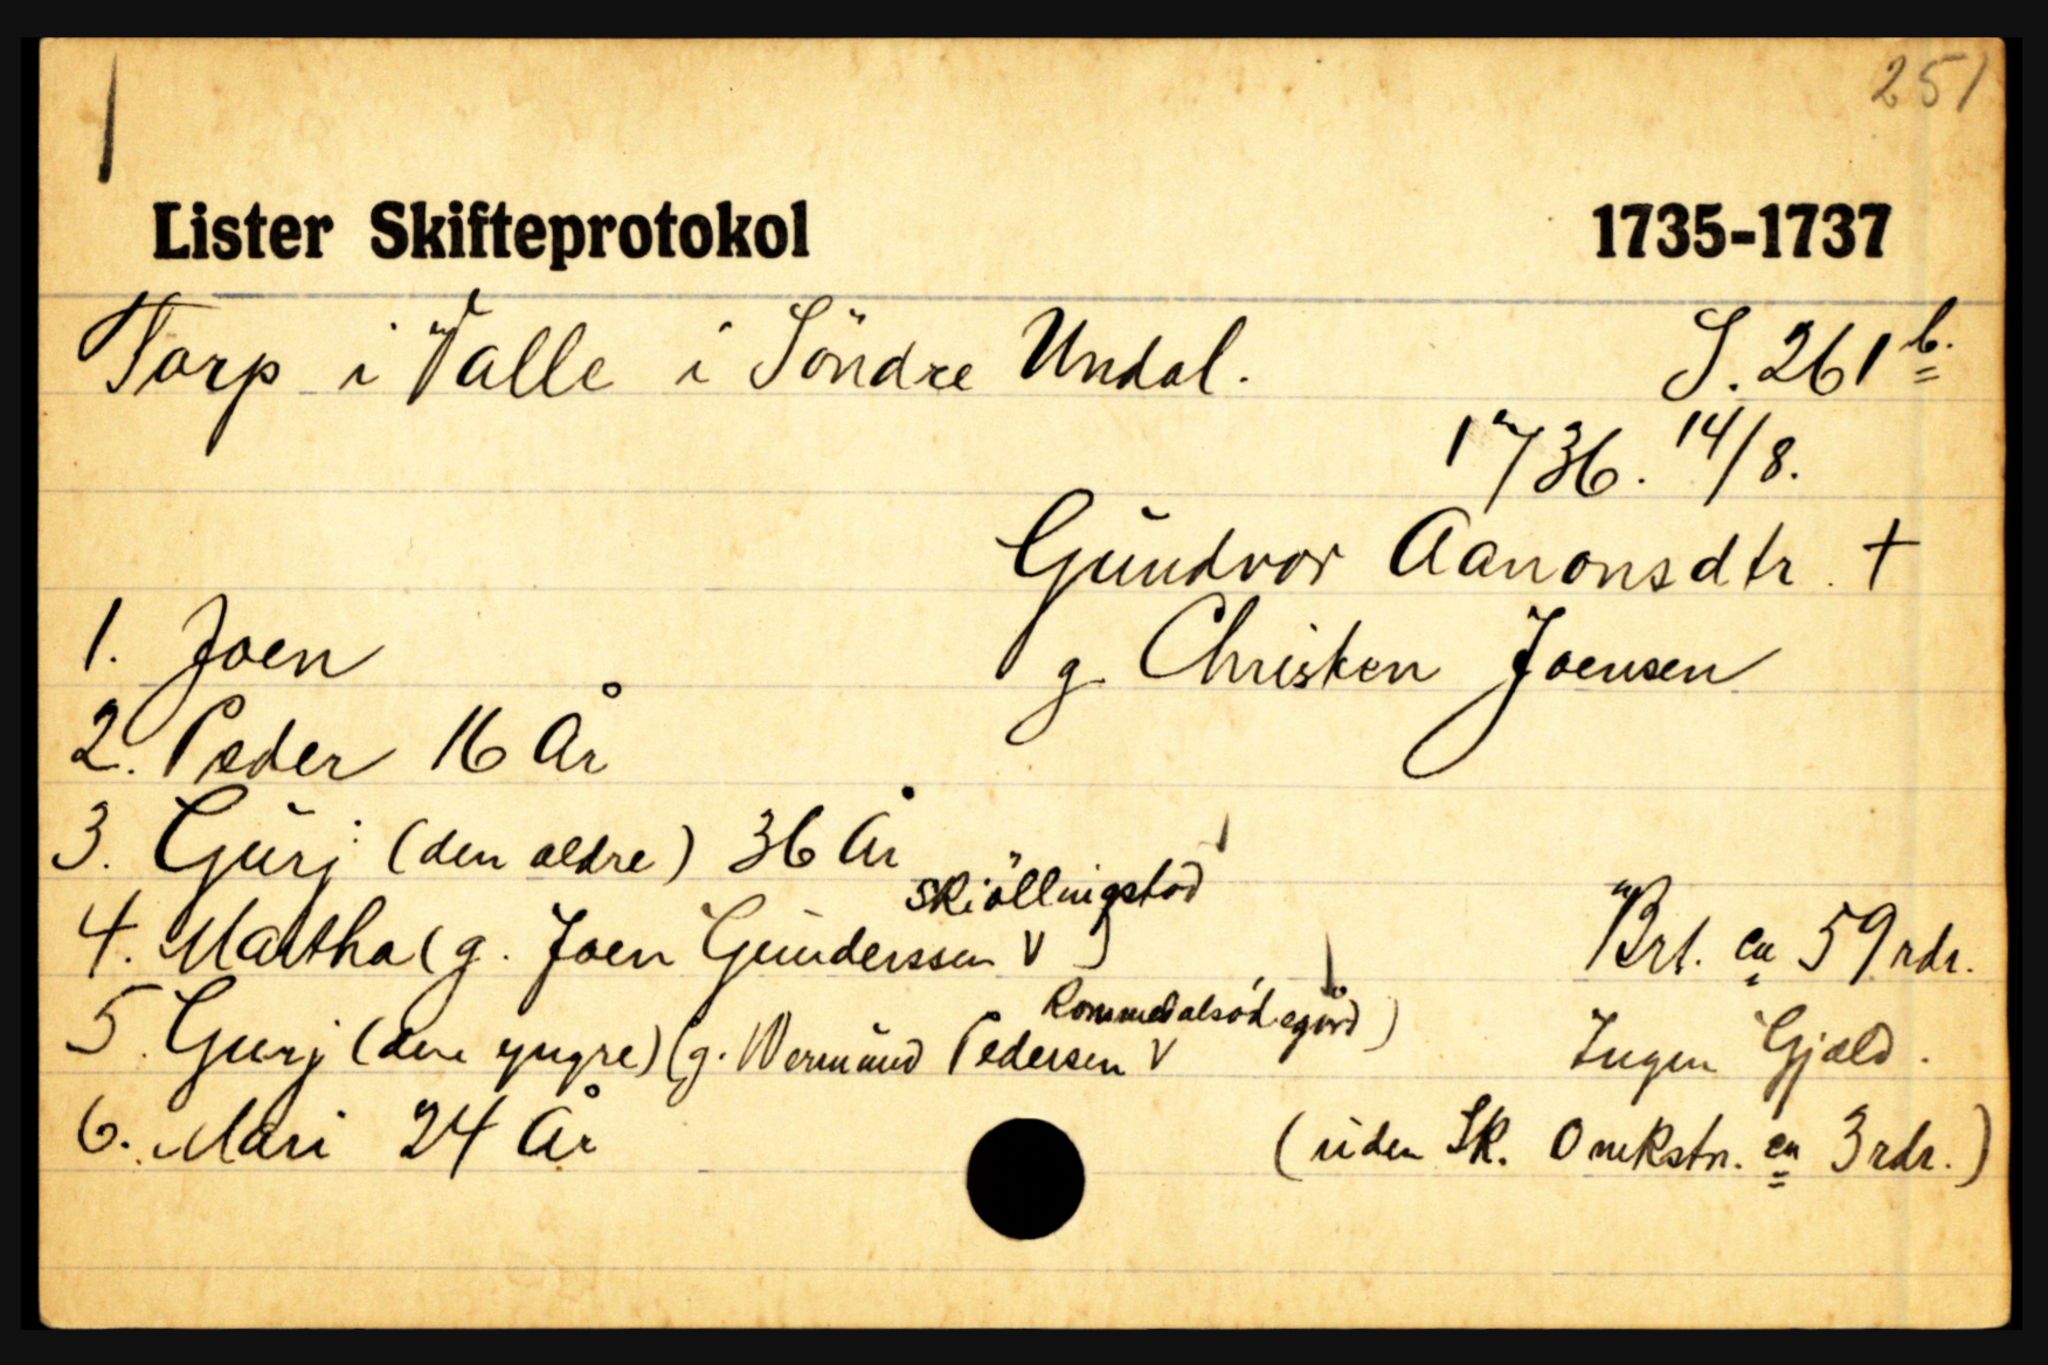 251
Lister Skifteprotokol 1735-1737
Torp i Valle i Söndre Undal. S. 261 b.
1736. 14/8.
Gundvor Aanonsdtr. +
1. Joen g. Christen Joensen
2. Peder 16 År
3. Gurj (den ældre) 36 År
Skiöllingstad
4. Martha (g. Joen Gunderssen V ) Brt. ca 59 rdr.
Rommedalsødegård)
5. Gurj (den yngre) (g. Wermund Pedersen V Ingen Gjæld.
6. Mari 24 År (uden Sk. Omkstn. ca 3 rdr.)